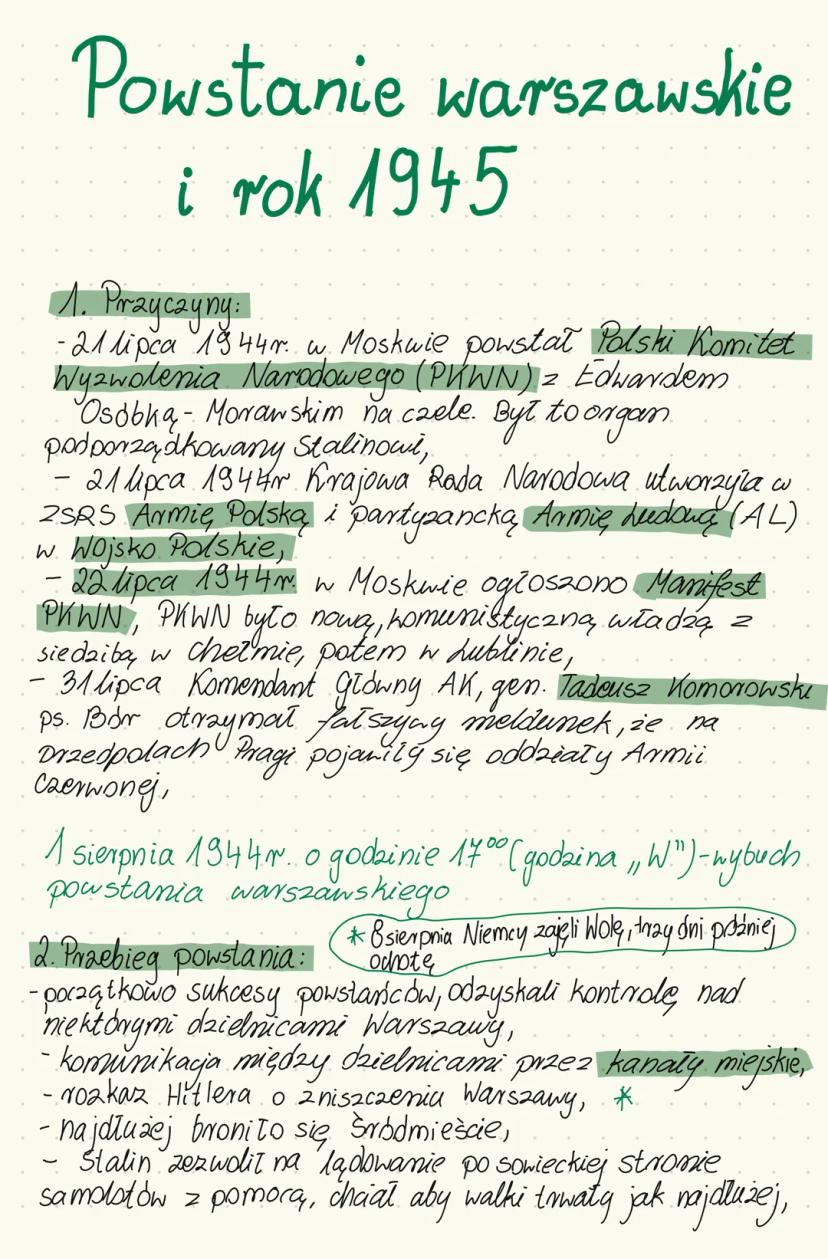 Powstanie warszawskie
i rok 1945
1. Przyczyny:
- 21 lipca 1944r. w Moskwie powstał Polski Komitet
Wyzwolenia Narodowego (PKWN) z Edwardem
Osóbką - Morawskim na czele. Był to organ
podporządkowany Stalinowi,
- 21 lipca 1944r Krajowa Rada Narodowa utworzyła w
ZSRS Armię Polską i partyzancką Armię Ludową (AL)
w Wojsko Polskie,
- 22 lipca 1944r. w Moskwie ogłoszono Manifest
PKWN, PKWN było nową, komunistyczną władzą z
siedzibą w Chełmie, potem w Lublinie,
- 31 lipca Komendant Główny AK, gen. Tadeusz Komorowski
ps. Bór otrzymał fałszywy meldunek, że na
przedpolach Pragi pojawiły się oddziały Armii
Czerwonej,
1 sierpnia 1944r. o godzinie 17⁰⁰ (godzina „W") - wybuch
powstania warszawskiego
* 8 sierpnia Niemcy zajęli Wolę, trzy dni później
ochotę
2. Przebieg powstania:
- początkowo sukcesy powstańców, odzyskali kontrolę nad
niektórymi dzielnicami Warszawy,
- komunikacja między dzielnicami przez kanały miejskie,
- rozkaz Hitlera o zniszczeniu Warszawy, *
- najdłużej broniło się Śródmieście,
- Stalin zezwolił na lądowanie po sowieckiej stronie
samolotów z pomocą, chciał aby walki trwały jak najdłużej,